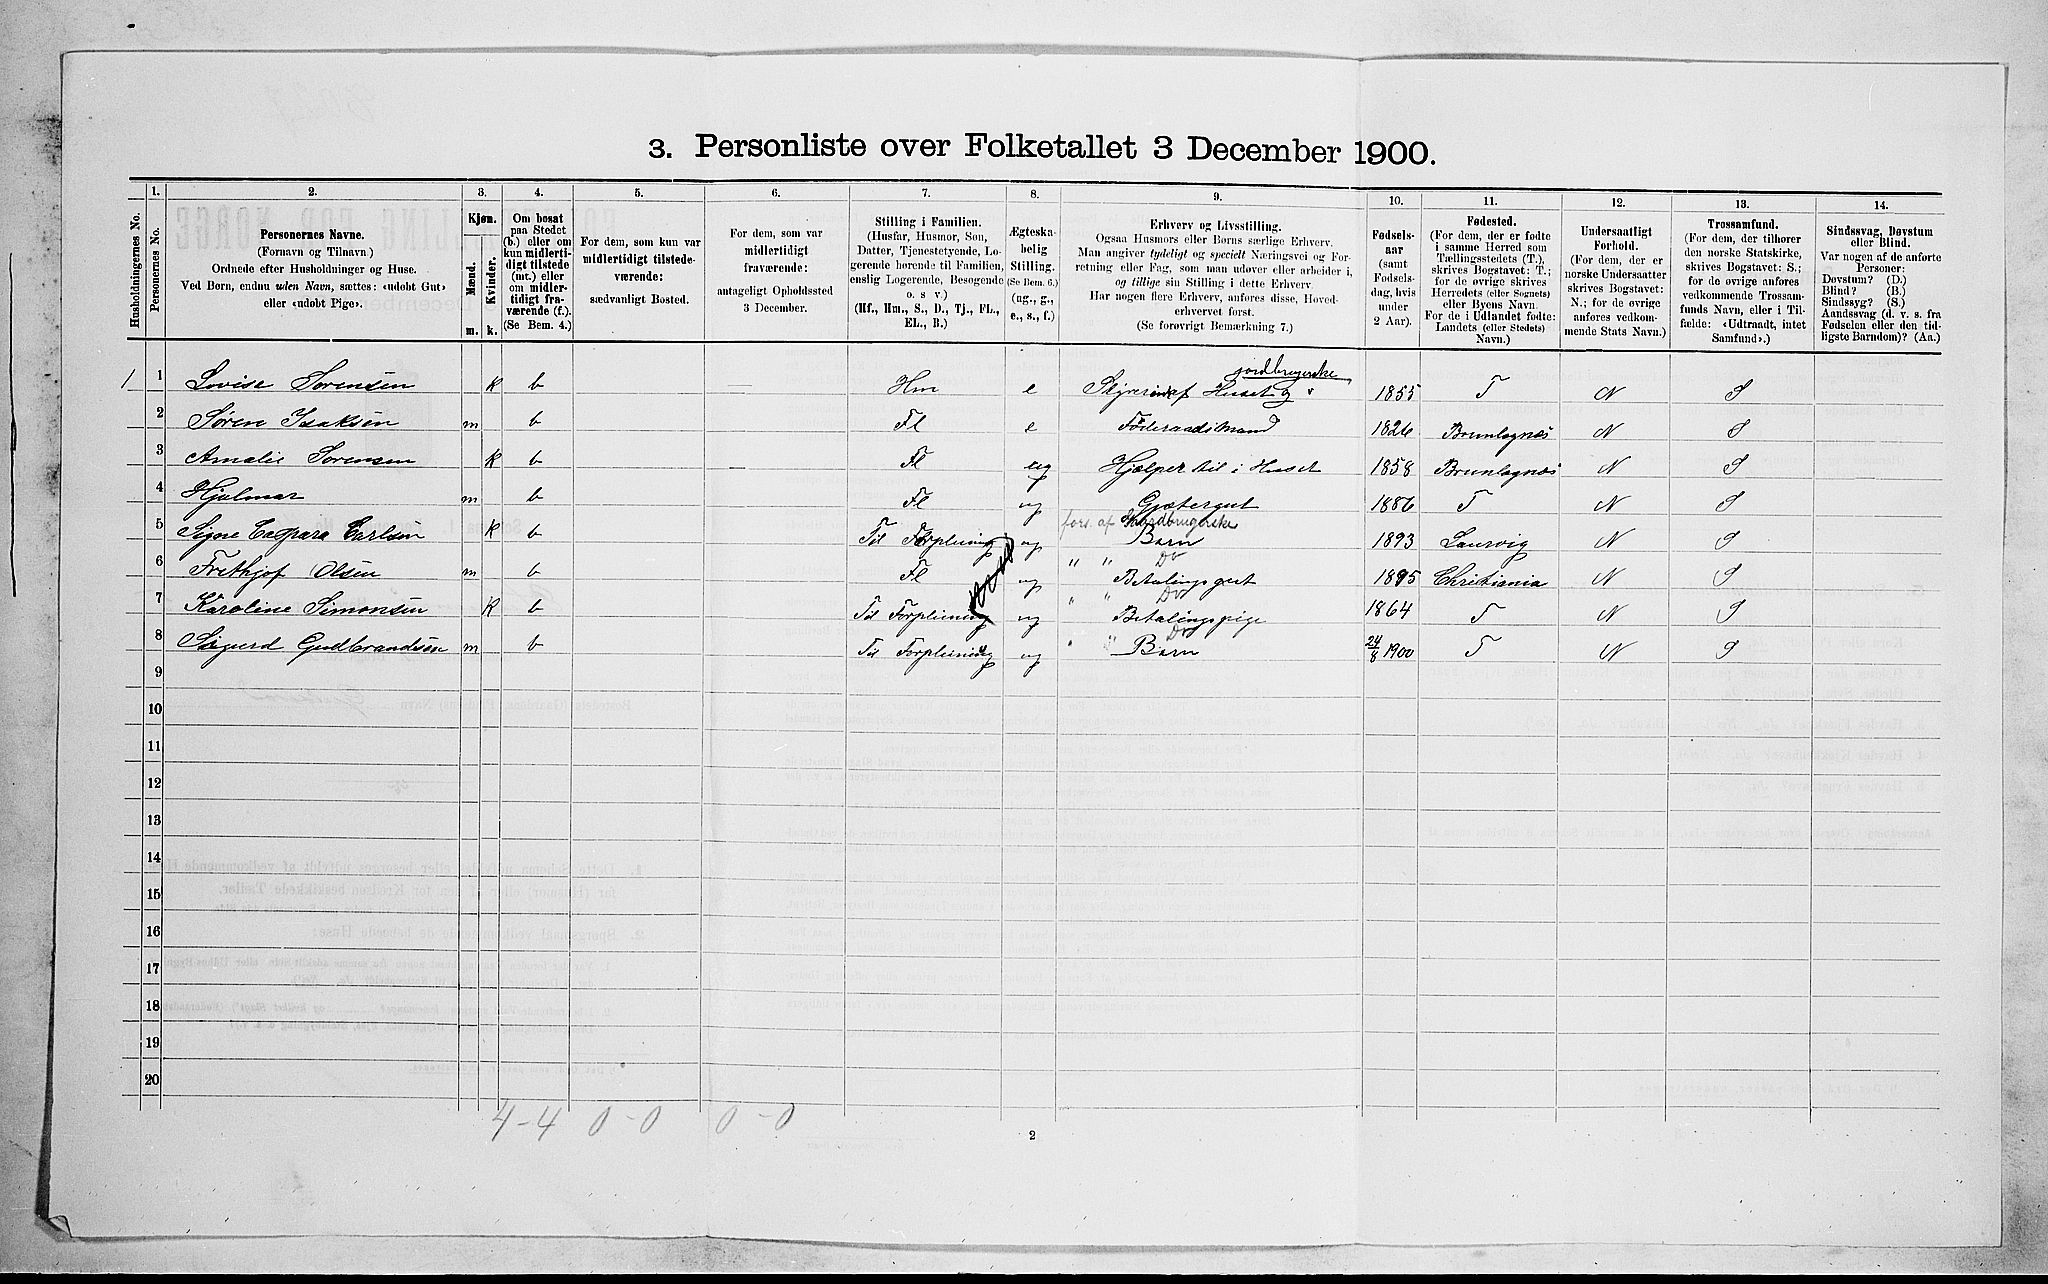 3. Personliste over Folketallet 3 December 1900.
1. 2. 3. 4. 5. 6. 7. 8. 9. 10. 11. 12. 13. 14.
Husholdningernes No.
Personernes No.
Personernes Navne.
(Fornavn og Tilnavn)
Ordnede efter Husholdninger og Huse.
Ved Børn, endnu uden Navn, sættes: «udøbt Gut»
eller «udøbt Pige».
Kjøn.
Mænd. Kvinder.
m. k.
Om bosat
paa Stedet
(b.) eller om
kun midlerti-
digt tilstede
(mt.) eller
om midler-
tidigt fra-
værende (f.).
(Se Bem. 4.)
For dem, som kun var
midlertidigt tilstede-
værende:
sædvanligt Bosted.
For dem, som var
midlertidigt
fraværende:
antageligt Opholdssted
3 December.
Stilling i Familien.
(Husfar, Husmor, Søn,
Datter, Tjenestetyende, Lo-
gerende hørende til Familien,
enslig Logerende, Besøgende
o. s v.)
(Hf., Hm., S., D., Tj., FL.,
EL., B.)
Ægteska-
belig
Stilling.
(Se Bem. 6.)
(ug., g.,
e., s., f.)
Erhverv og Livsstilling.
Ogsaa Husmors eller Børns særlige Erhverv.
Man angiver tydeligt og specielt Næringsvei og For-
retning eller Fag, som man udøver eller arbeider i,
og tillige sin Stilling i dette Erhverv.
Har nogen flere Erhverv, anføres disse, Hoved-
erhvervet først.
(Se forøvrigt Bemærkning 7.)
Fødsels-
aar
(samt
Fødsels-
dag, hvis
under
2 Aar).
Fødested.
(For dem, der er fødte
i samme Herred som
Tællingsstedets (T.),
skrives Bogstavet: T.;
for de øvrige skrives
Herredets (eller Sognets)
eller Byens Navn.
For de i Udlandet fødte:
Landets (eller Stedets)
Navn.)
Undersaatligt
Forhold.
(For dem, der er
norske Undersaatter
skrives Bogstavet:
N.; for de øvrige
anføres vedkom-
mende Stats Navn.)
Trossamfund.
(For dem, der tilhører
den norske Statskirke,
skrives Bogstavet: S.;
for de øvrige anføres
vedkommende Trossam-
funds Navn, eller i Til-
fælde: «Udtraadt, intet
Samfund».)
Sindssvag, Døvstum
eller Blind.
Var nogen af de anførte
Personer:
Døvstum? (D.)
Blind? (B.)
Sindssyg? (S.)
Aandssvag (d. v. s. fra
Fødselen eller den tid-
ligste Barndom)? (Aa.)
jordbrugerske
1 1 Lovise Sørensen k b — Hm e Huset 1855 T N S
2 Søren Isaksen m b Fl e Føderaadsmand 1826 Brunlagnæs N S
3 Amalie Sørensen k b Fl ug Hjælper til i Huset 1858 Brunlagnæs N S
4 Hjalmar m b Fl ug Gjætergut 1886 T N S
fors. af Jordbrugerske
5 Signe Caspara Carlsen k b Til Forpleining ug Barn 1893 Laurvig N S
" " Do
6 Frithjof Olsen m b Fl ug Betalingsgut 1895 Christiania N S
" " Do
7 Karoline Simonsen k b Til Forpleining ug Betalingspige 1864 T N S
" " Do
8 Sigurd Gudbrandsen m b Til Forpleining ug Barn 24/8 1900 T N S
9
10
11
12
13
14
15
16
17
18
19
20
4 - 4 0 - 0 0 - 0
2